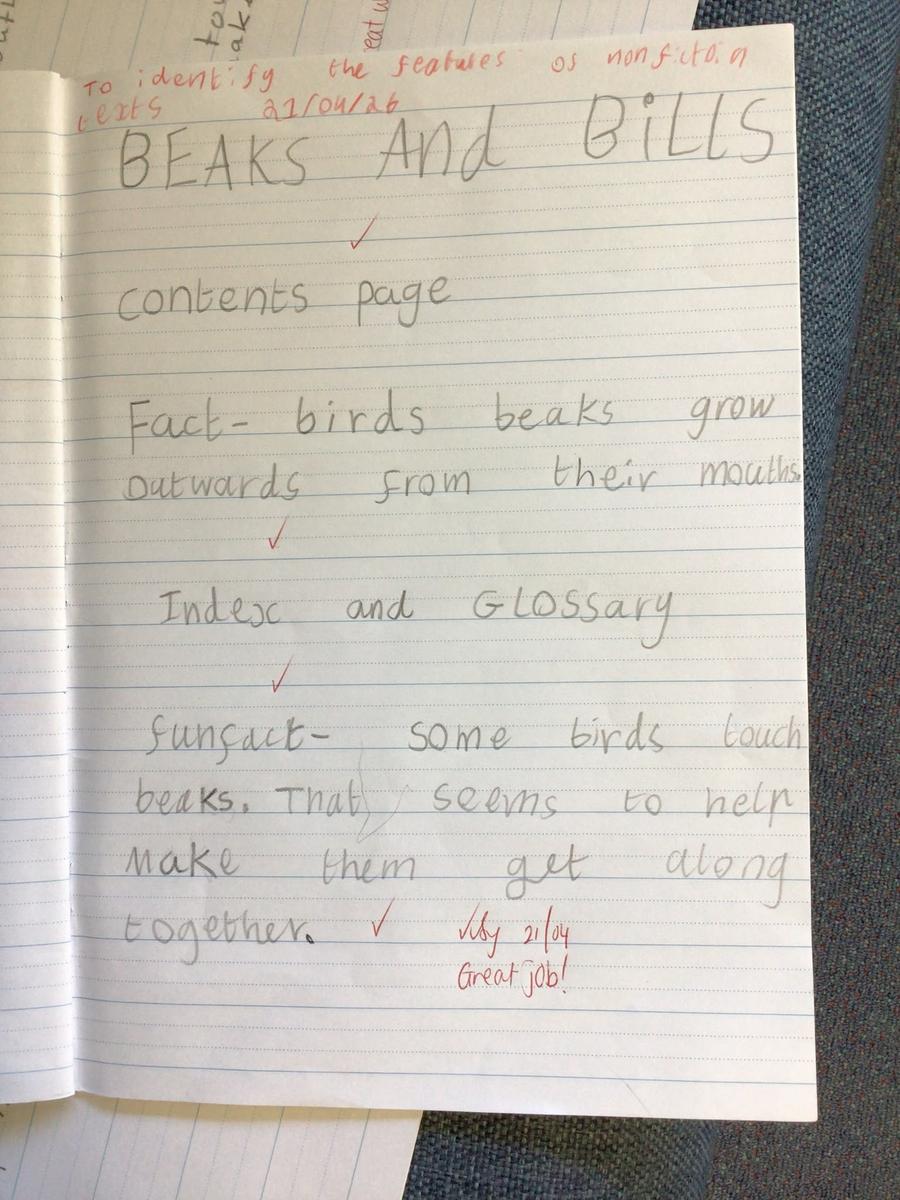 To identify the features os nonfictoin
texts 21/04/26
BEAKS And BiLLS
contents page
Fact- birds beaks grow
outwards from their mouths.
Index and GLOSSary
funfact- some birds touch
beaks. That seems to help
Make them get along
together.
21/04
Great job!